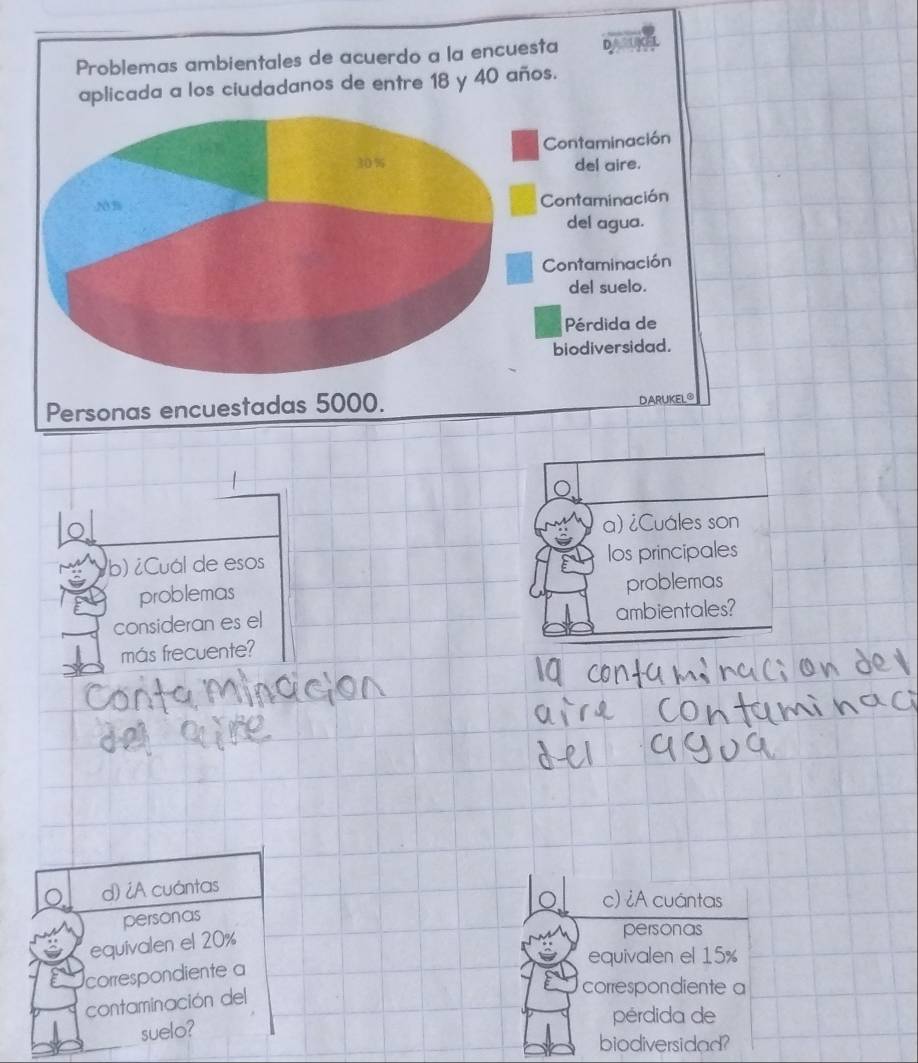 Problemas ambientales de acuerdo a la encuesta
aplicada a los ciudadanos de entre 18 y 40 años.
DARUKEL
30%
20%
Contaminación
del aire.
Contaminación
del agua.
Contaminación
del suelo.
Pérdida de
biodiversidad.
Personas encuestadas 5000.
DARUKEL®
a) ¿Cuáles son
los principales
problemas
ambientales?
la contaminacion del
aire contaminaci
del agua
b) ¿Cuál de esos
problemas
consideran es el
más frecuente?
contaminacion
del aire
d) ¿A cuántas
personas
equivalen el 20%
correspondiente a
contaminación del
suelo?
c) ¿A cuántas
personas
equivalen el 15%
correspondiente a
pérdida de
biodiversidad?